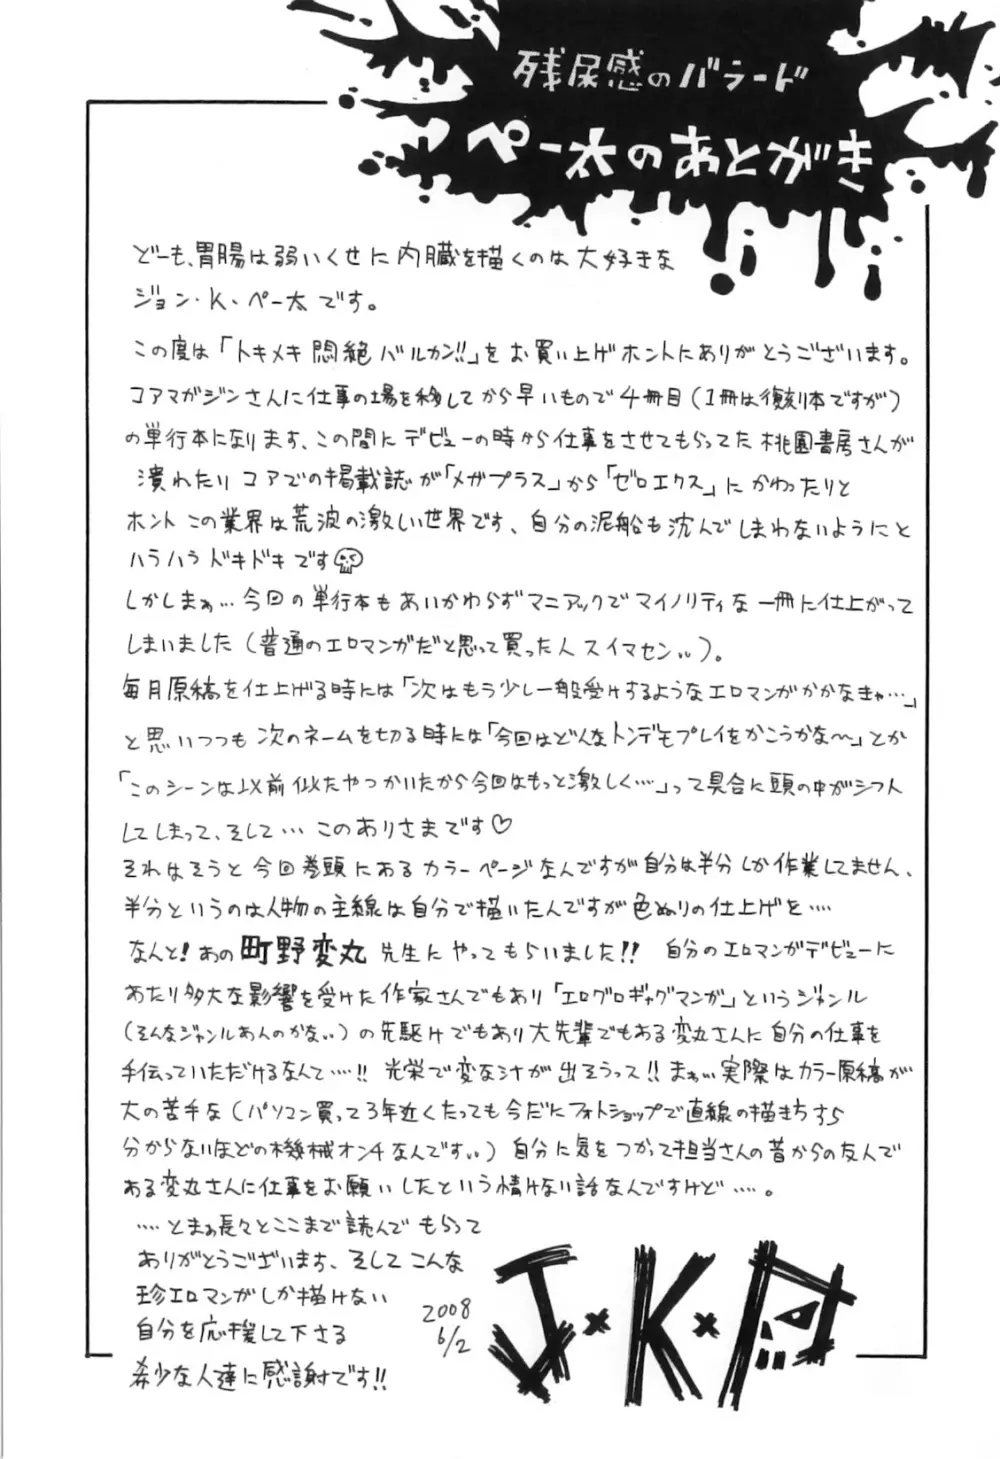 残尿感のバラード
ペー太のあとがき
どーも、胃腸は弱いくせに内臓を描くのは大好きな
ジョン・K・ペー太です。
この度は「トキメキ悶絶バルカン!!」をお買い上げホントにありがとうございます。
コアマガジンさんに仕事の場を移してから早いもので4冊目(1冊は復刻本ですが)
の単行本になります、この間にデビューの時から仕事をさせてもらってた桃園書房さんが
潰れたりコアでの掲載誌が「メガプラス」から「ゼロエクス」にかわったりと
ホントこの業界は荒波の激しい世界です、自分の泥船も沈んでしまわないようにと
ハラハラドキドキです
しかしまぁ…今回の単行本もあいかわらずマニアックでマイノリティな一冊に仕上がって
しまいました(普通のエロマンガだと思って買った人スイマセン‥)。
毎月原稿を仕上げる時には「次はもう少し一般受けするようなエロマンガかかなきゃ…」
と思いつつも次のネームを切る時には「今回はどんなトンデモプレイをかこうかな〜」とか
「このシーンは以前似たやつかいたから今回はもっと激しく…」って具合に頭の中がシフト
してしまって、そして…このありさまです♡
それはそうと今回巻頭にあるカラーページなんですが自分は半分しか作業してません、
半分というのは人物の主線は自分で描いたんですが色ぬりの仕上げを‥‥
なんと!あの町野変丸先生にやってもらいました!!自分のエロマンガデビューに
あたり多大な影響を受けた作家さんでもあり「エログロギャグマンガ」というジャンル
(そんなジャンルあんのかな‥)の先駆けでもあり大先輩でもある変丸さんに自分の仕事を
手伝っていただけるなんて…‥!!光栄で変な汁が出そうっス!!まぁ…実際はカラー原稿が
大の苦手な(パソコン買って3年近くたっても今だにフォトショップで直線の描き方すら
分からないほどの機械オンチなんです‥)自分に気をつかって担当さんの昔からの友人で
ある変丸さんに仕事をお願いしたという情けない話なんですけど‥‥。
‥‥とまぁ長々とここまで読んでもらって
ありがとうございます、そしてこんな
珍エロマンガしか描けない
自分を応援して下さる
希少な人達に感謝です!!
2008
6/2
J×K×P